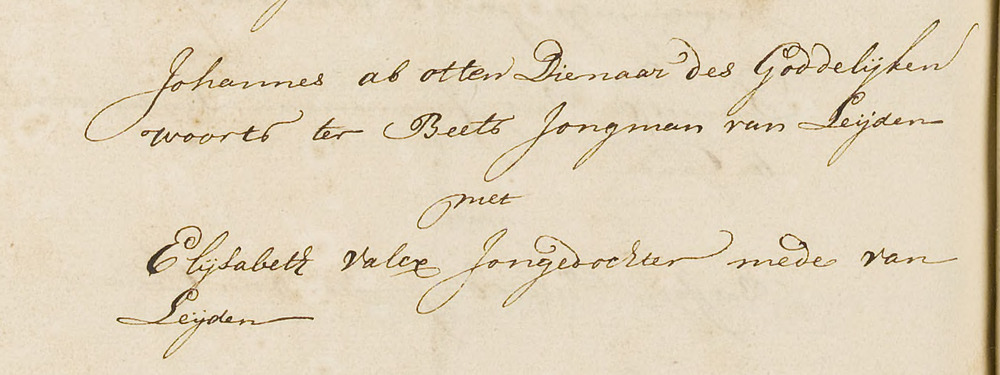 Johannes ab otten Dienaar des Goddelijken
woorts ter Beets Jongman van Leijden
met
Elijsabeth valcx Jongedochter mede van
Leijden